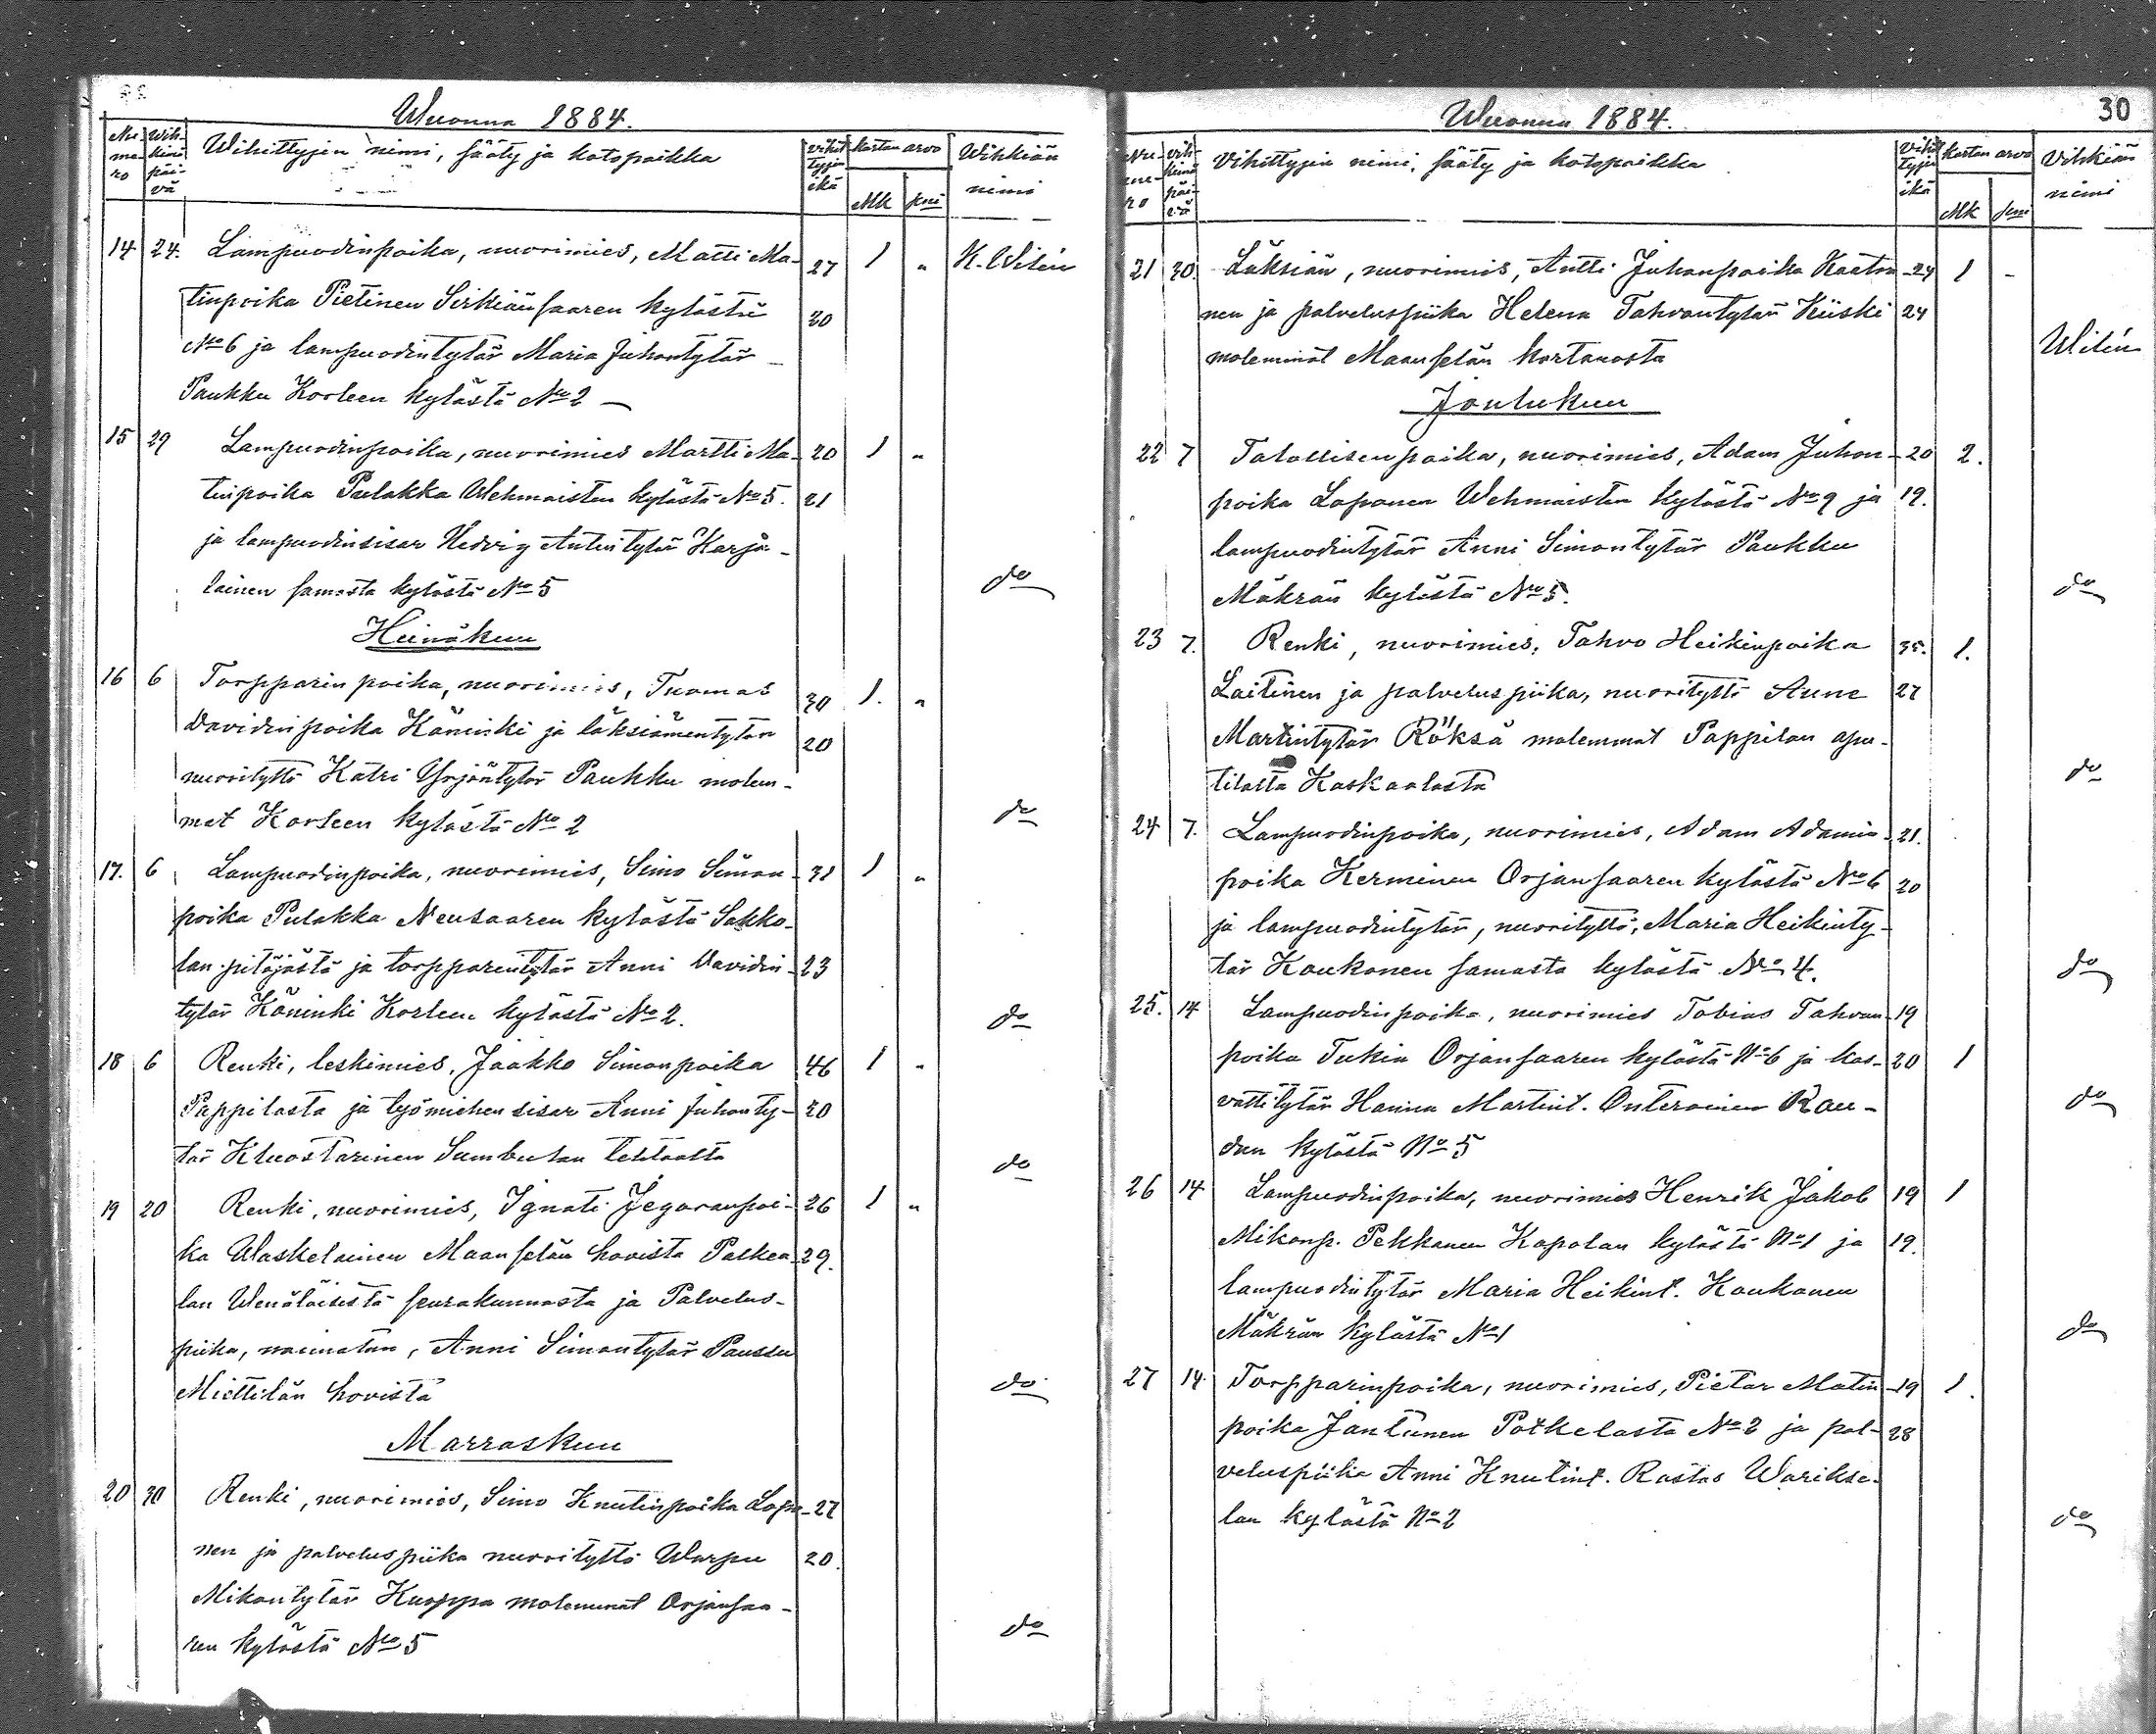 Wuonna 1884.
Nu mero
Wihkimä päivä
Wihittyjen nimi, sääty ja kotopaikka
vihittyjen ikä
kartan arvo
Mk
Wihkiän nimi
14 24. Lampuodinpoika, nuorimies, Matti Ma- 27 1 „ K. Witén
tinpoika Pietinen Sirkiänsaaren kylästä 30
No 6 ja lampuodintytär Maria Juhontytär
Paukku Korleen kylästä No 2
15 29 Lampuodinpoika, nuorimies Martti Ma- 20 1 „
tinpoika Pulakka Wehmaisten kylästä No 5. 21
ja lampuodinsisar Hedvig Antintytär Karja-
lainen samasta kylästä No 5 do
Heinäkuu
16 6 Torpparin poika, nuorimies, Tuomas 30 1. „
Davidinpoika Käninki ja läksiämentytär 20
nuorityttö Katri Yrjöntytär Paukku molem-
mat Korleen kylästä No 2 do
17. 6 Lampuodinpoika, nuorimies, Simo Simon- 31 1 „
poika Pulakka Neusaaren kylästä Sakko-
lan pitäjästä ja torpparintytär Anni Davidin- 23
tytär Käninki Korleen kylästä No 2. do
18 6 Renki, leskimies, Jaakko Simonpoika 46 1 „
Pappilasta ja työmiehen sisar Anni Juhonty- 30
tär Kluostarinen Sumbulan tehtaalta do
19 20 Renki, nuorimies, Ignati Jegoranpoi- 26 1 „
ka Waskelainen Maanselän hovista Palkea- 29.
lan Wenäläisestä seurakunnasta ja Palvelus-
piika, naimaton, Anni Simontytär Paussu
Miettilän hovista do
Marraskuu
20 30 Renki, nuorimies, Simo Knutinpoika Lopo- 27
nen ja palveluspiika nuorityttö Warpu 20.
Mikontytär Kuoppa molemmat Orjansaa-
ren kylästä No 5 do
30
Wuonna 1884.
Nu-me-ro
vihkimäpäivä
Vihittyjen nimi, sääty ja kotopaikka
Vihittyjen ikä
kartan arvo
Mk
Vihkiän nimi
21 30. Läksiän, nuorimies, Antti Juhonpoika Kaati- 24 1 -
nen ja palveluspiika Helena Tahvontytär Kiiski 24
molemmat Maanselän kartanosta Witén
Joulukuu
22 7 Talollisenpoika, nuorimies, Adam Juhon- 20 2.
poika Loponen Wehmaisten kylästä No 9 ja 19.
lampuodintytär Anni Simontytär Paukku
Mäkrän kylästä No 5. do
23 7. Renki, nuorimies, Tahvo Heikinpoika 35. 1.
Laitinen ja palveluspiika, nuorityttö Anne 27
Martintytär Röksä molemmat Pappilan apu-
tilasta Kaskaalasta do
24 7. Lampuodinpoika, nuorimies, Adam Adamin- 21.
poika Kerminen Orjansaaren kylästä No 6 20
ja lampuodintytär, nuorityttö, Maria Heikinty-
tär Kaukonen samasta kylästä No 4. do
25. 14 Lampuodinpoika, nuorimies Tobias Tahvon- 19
poika Tukia Orjansaaren kylästä No 6 ja kas- 20 1
vattitytär Hanna Martint. Onteroinen Rau- do
dun kylästä No 5
26 14 Lampuodinpoika, nuorimies Henrik Jakob 19 1
Mikonp. Pekkanen Kopolan kylästä No 1 ja 19.
lampuodintytär Maria Heikint. Kaukonen
Mäkrän kylästä No 1 do
27 14. Torpparinpoika, nuorimies, Pietar Matin- 19 1.
poika Jantunen Potkelasta No 2 ja pal- 28
veluspiika Anni Knutint. Rastas Warikse-
lan kylästä No 2 do